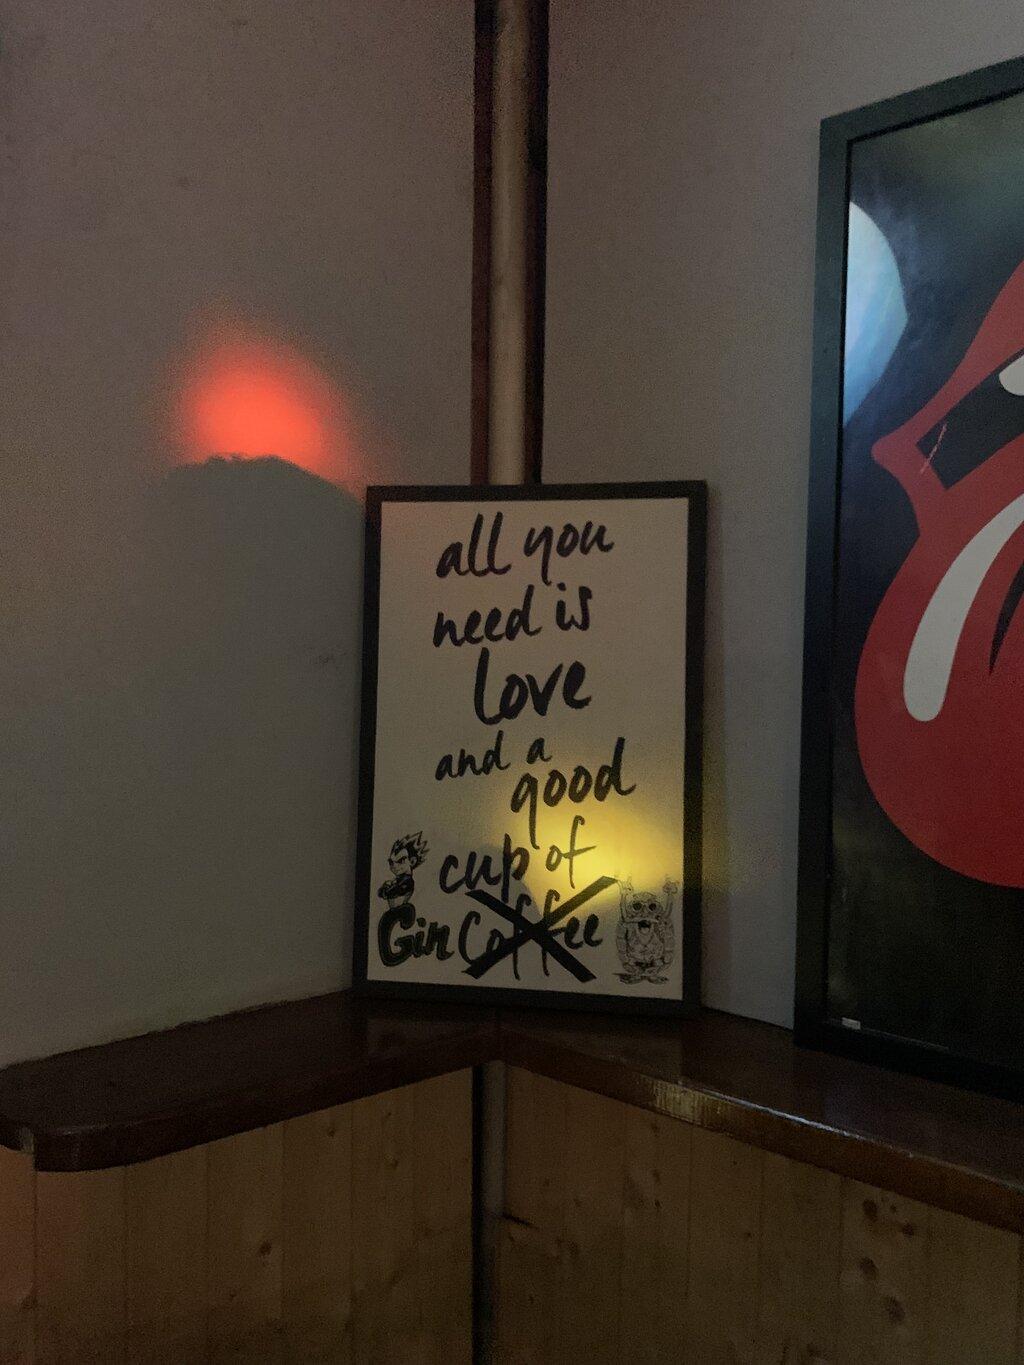 all you
need is
love
and a
good
cup of
Gin Coffee